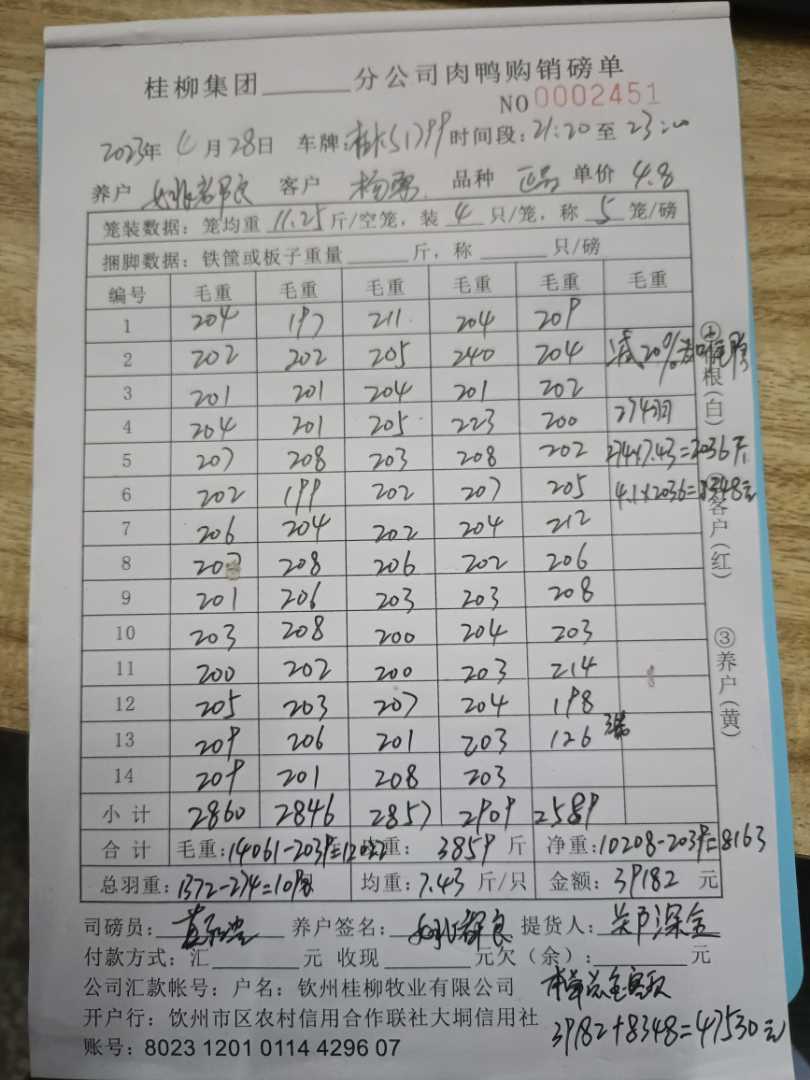 桂柳集团______分公司肉鸭购销磅单
NO 0002451
2023年 4月28日 车牌:桂K51799 时间段:21:20至23:00
养户 客户 杨 品种 正品 单价 4.8
笼装数据:笼均重 11.25 斤/空笼,装 4 只/笼,称 5 笼/磅
捆脚数据:铁筐或板子重量______斤,称______只/磅
编号 毛重 毛重 毛重 毛重 毛重 毛重
1 204 197 211 204 209
2 202 202 205 240 204 减20%
3 201 201 204 201 202
4 204 201 205 223 200 274羽
5 207 208 203 208 202 274×7.43=2036斤
6 202 199 202 207 205 4.1×2036=8348元
7 206 204 202 204 212
8 207 208 206 202 206
9 201 206 203 203 208
10 203 208 200 204 203
11 200 202 200 203 214
12 205 203 207 204 198
13 209 206 201 203 126 3笼
14 209 201 208 203
小计 2860 2846 2857 2909 2589
合计 毛重:14061-2039=12022 重: 3859 斤 净重:10208-2039=8163
总羽重:1372-274=1098 均重:7.43 斤/只 金额:39182 元
①根(白) ②客户(红) ③养户(黄)
司磅员: 养户签名: 提货人:
付款方式:汇______元 收现______元欠(余):______元
公司汇款帐号:户名:钦州桂柳牧业有限公司
开户行:钦州市区农村信用合作联社大垌信用社
39182+8348=47530元
账号:8023 1201 0114 4296 07